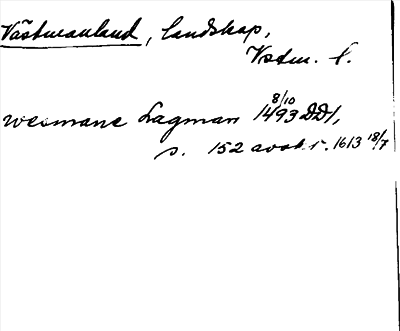 Västmanland, landskap,
Vstm. l.
wesmane Lagman 8/10 1493 DD1,
s. 152 avskr. 1613 18/7